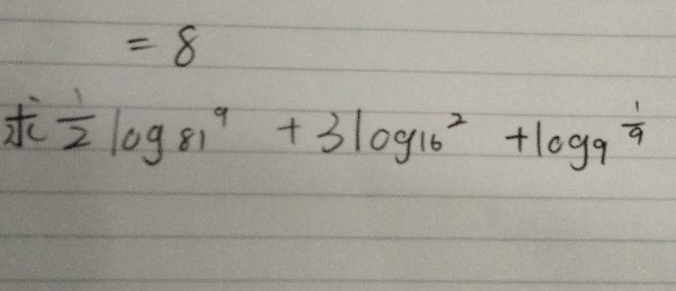 = 8
求 1/2 log₈₁⁹ + 3log₁₆² + log₉^(1/9)